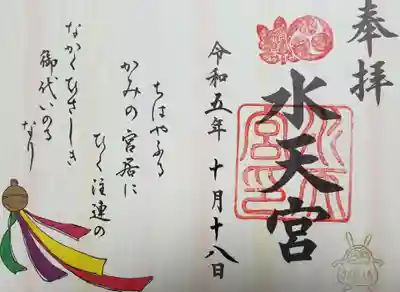 奉拝
水天宮
令和五年 十月十八日
ちはやふる
かみの宮居に
ひく注連の
なかくひさしき
御代いのる
なり